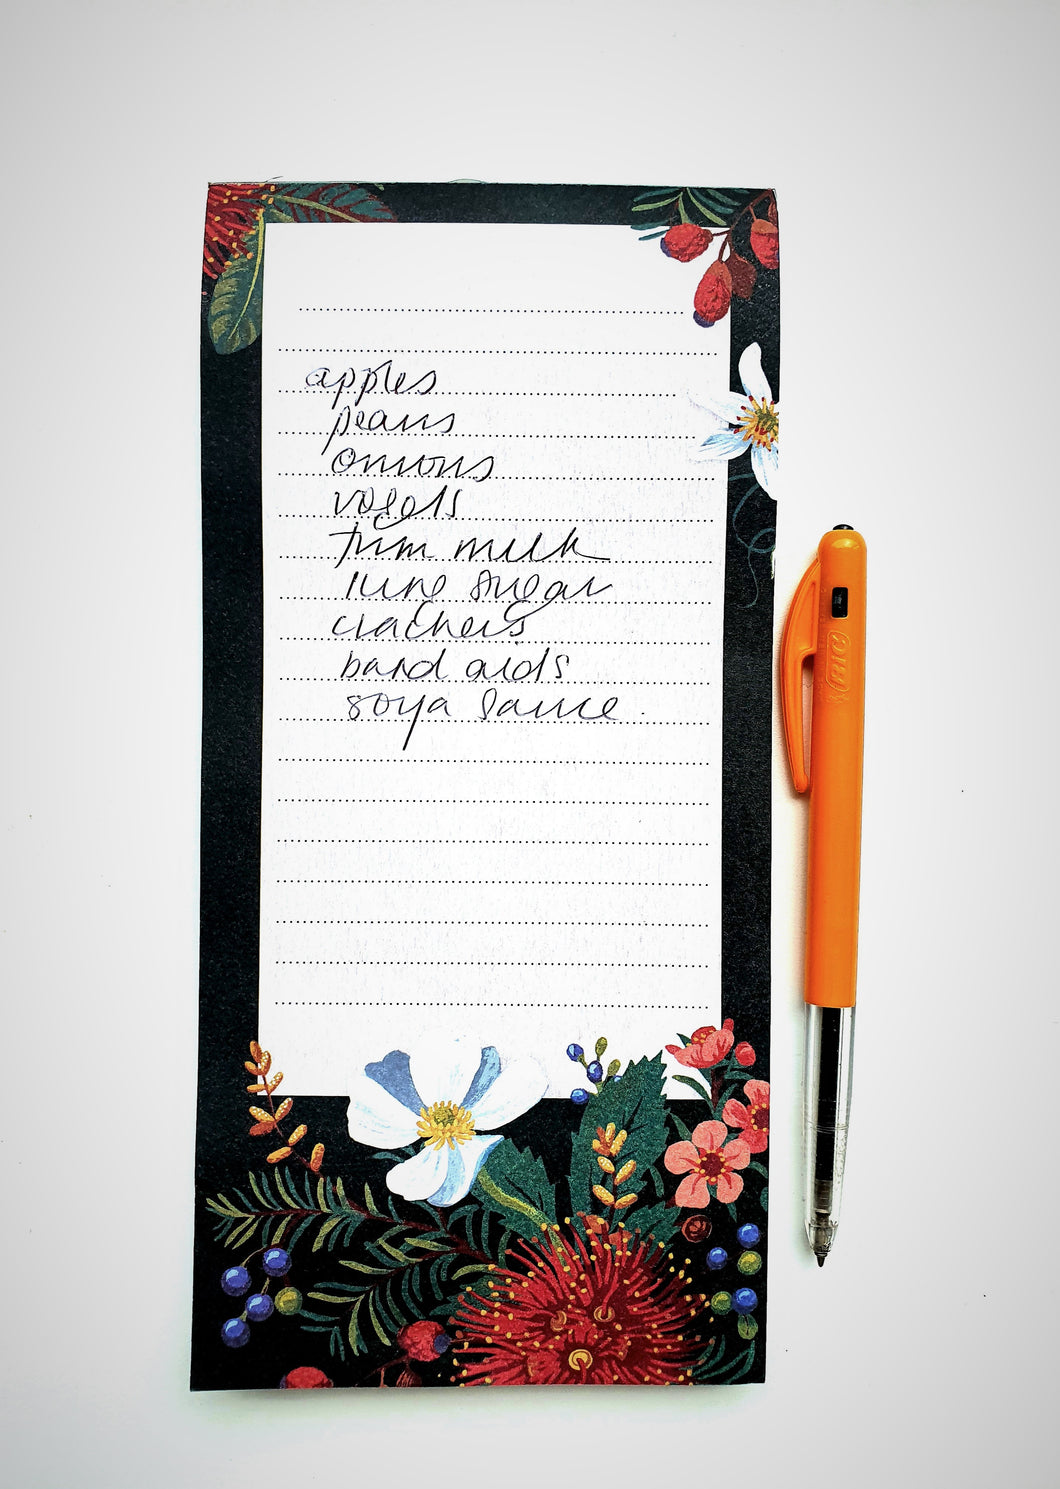 apples
pears
onions
vogels
trim milk
sugar
crackers
band aids
soya sauce
BIC